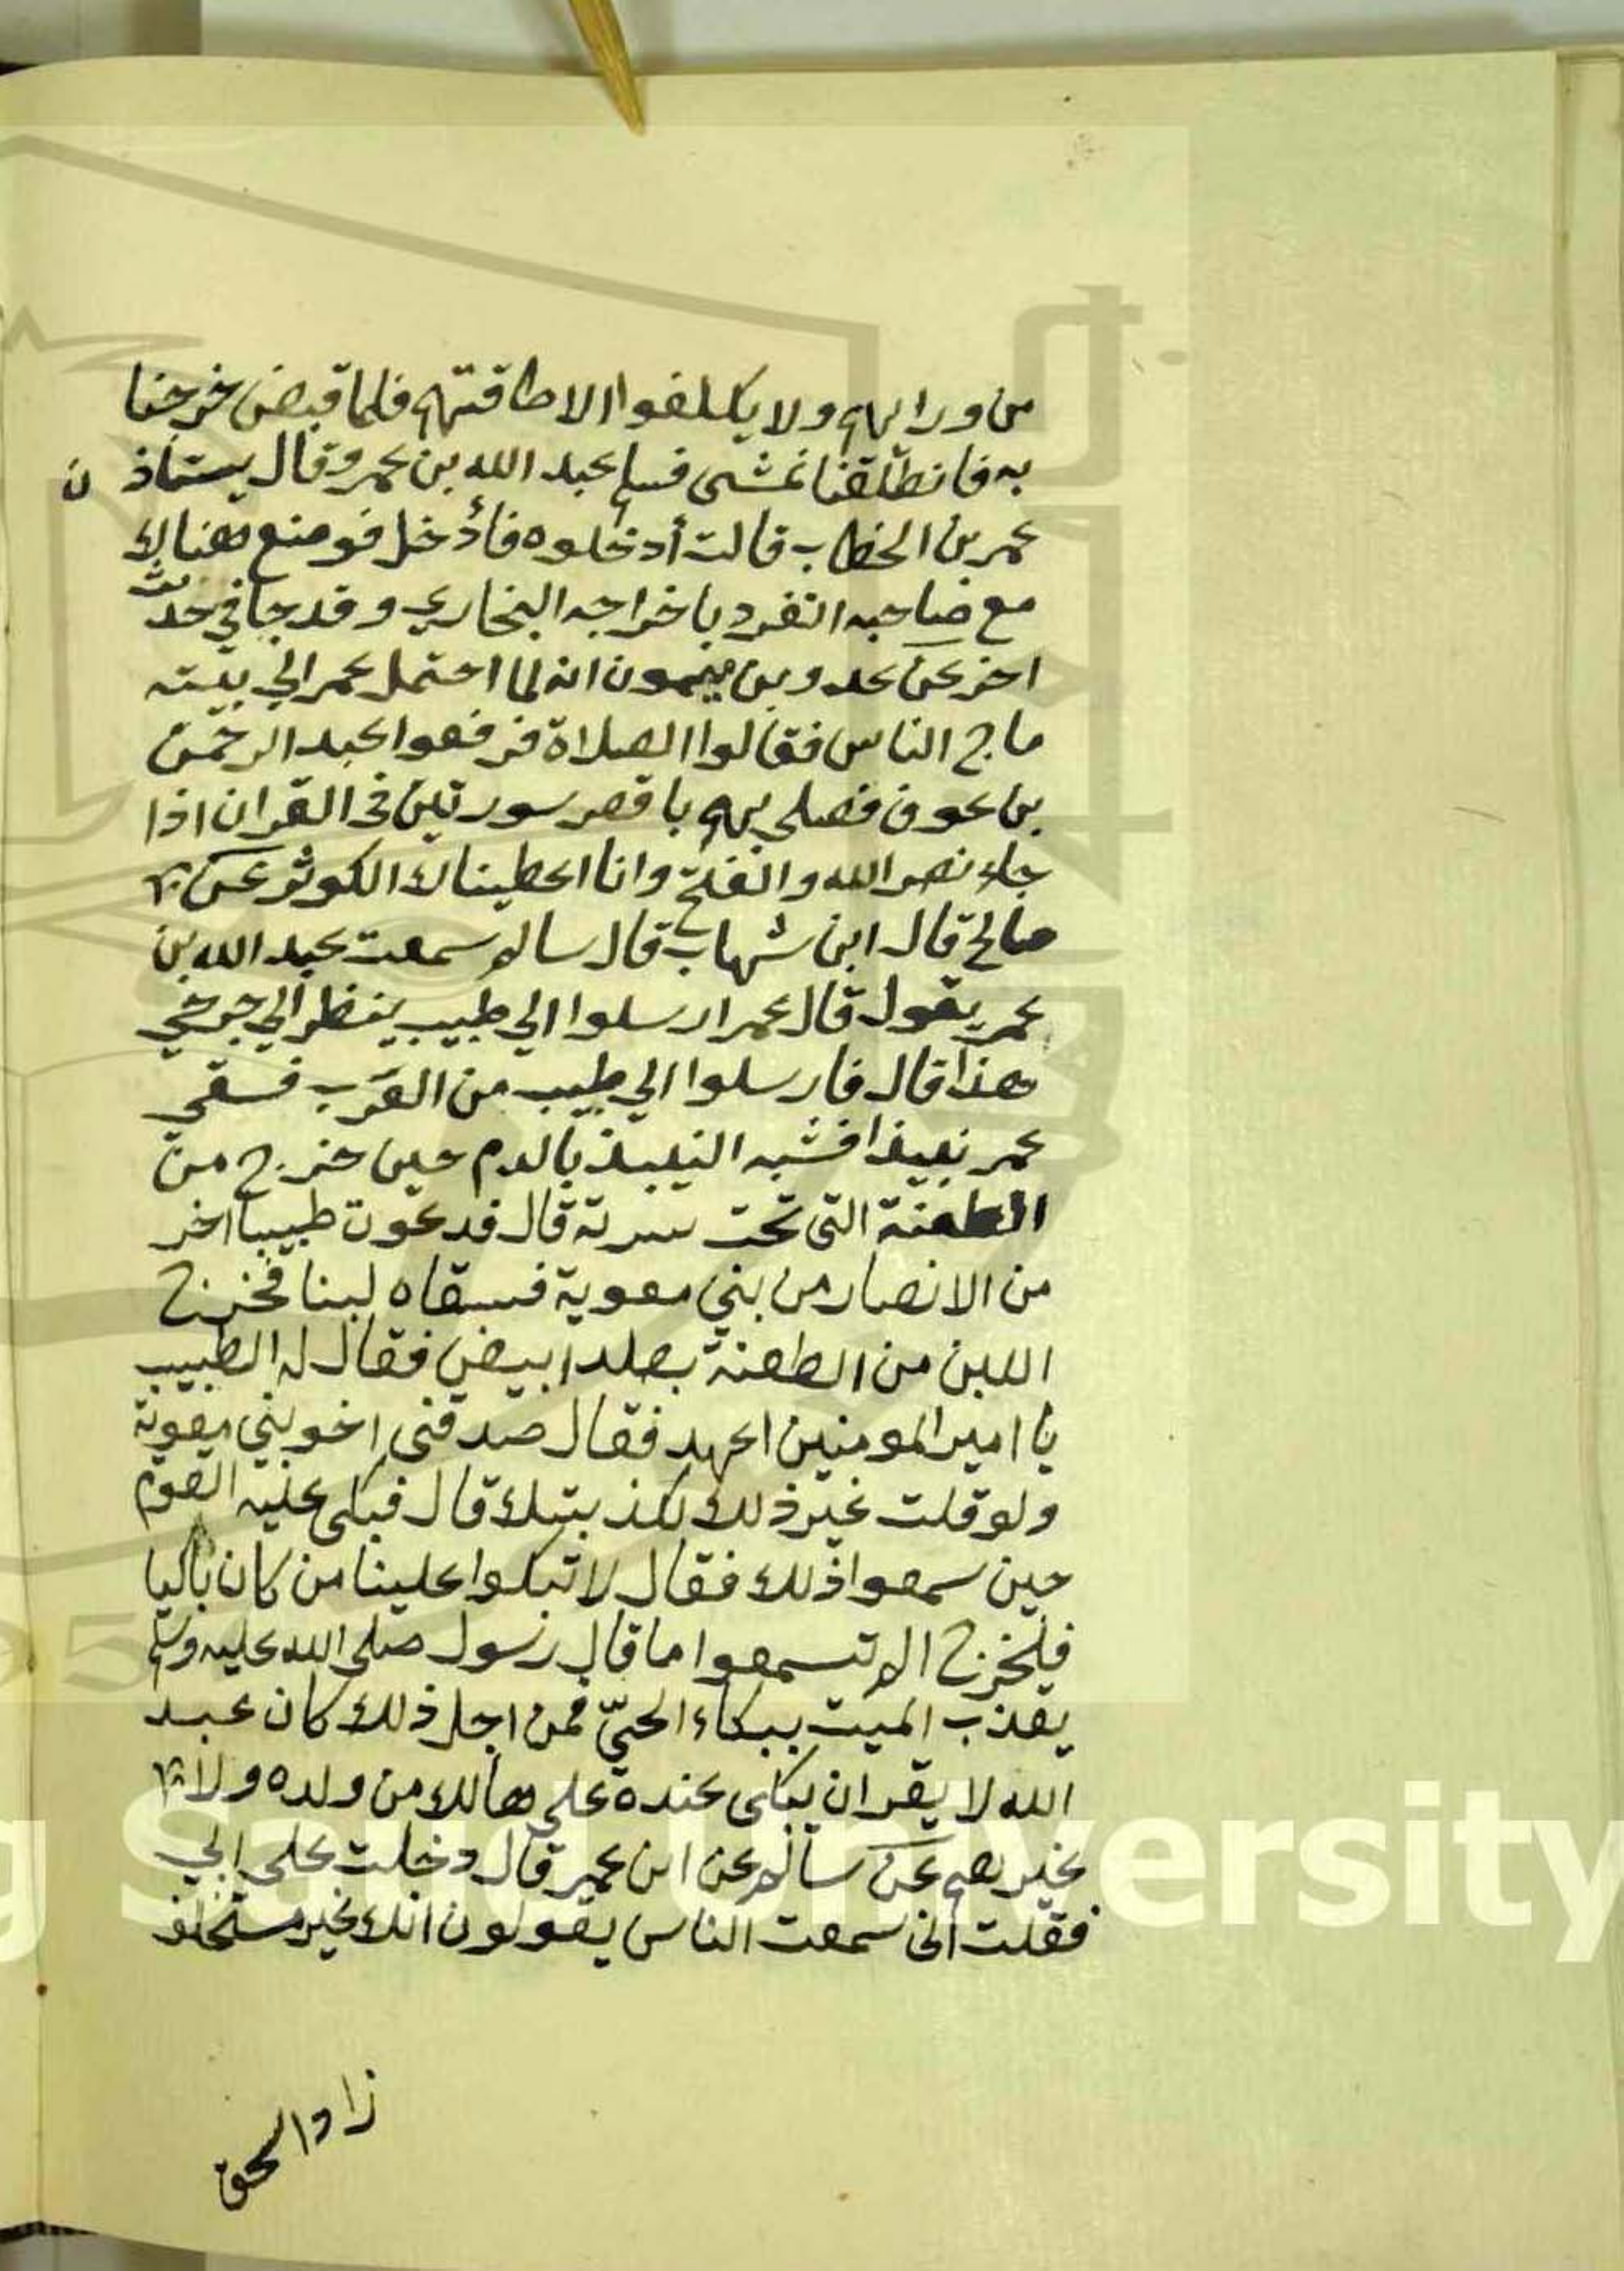 من ورايهم ولا يكلفوا الا طاقتهم فلما قبض خرجنا
به فانطلقنا نمشى فسلم عبد الله بن عمر وقال يستاذن
عمر بن الخطاب قالت أدخلوه فأدخل فوضع هنالك
مع صاحبه انفرد باخراجه البخاري وقد جا في حديث
اخر عن عمرو بن ميمون انه لما احتمل عمر الي بيته
ماج الناس فقالوا الصلاة فرفعوا عبد الرحمن
بن عوف فصلي بهم باقصر سورتين في القران اذا
جاء نصر الله والفتح وانا اعطيناك الكوثر عن
صالح قال ابن شهاب قال سالم سمعت عبد الله بن
عمر يقول قال عمر ارسلوا الي طبيب ينظر الي جرحي
هذا قال فارسلوا الي طبيب من العرب فسقي
عمر نبيذا فشبه النبيذ بالدم حين خرج من
الطعنة التي تحت سرته قال فدعوت طبيبا اخر
من الانصار من بني معوية فسقاه لبنا فخرج
اللبن من الطعنة بصلد ابيض فقال له الطبيب
يا امير المومنين اعهد فقال صدقني اخو بني معوية
ولو قلت غير ذلك لكذبتك قال فبكي عليه القوم
حين سمعوا ذلك فقال لا تبكوا علينا من كان باكيا
فليخرج الم تسمعوا ما قال رسول صلي الله عليه وسلم
يعذب الميت ببكاء الحيّ فمن اجل ذلك كان عبد
الله لا يقر ان يبكى عنده علي هالك من ولده ولا
غيرهم عن سالم عن ابن عمر قال دخلت علي ابي
فقلت اني سمعت الناس يقولون انك غير مستخلف
زادا لحق